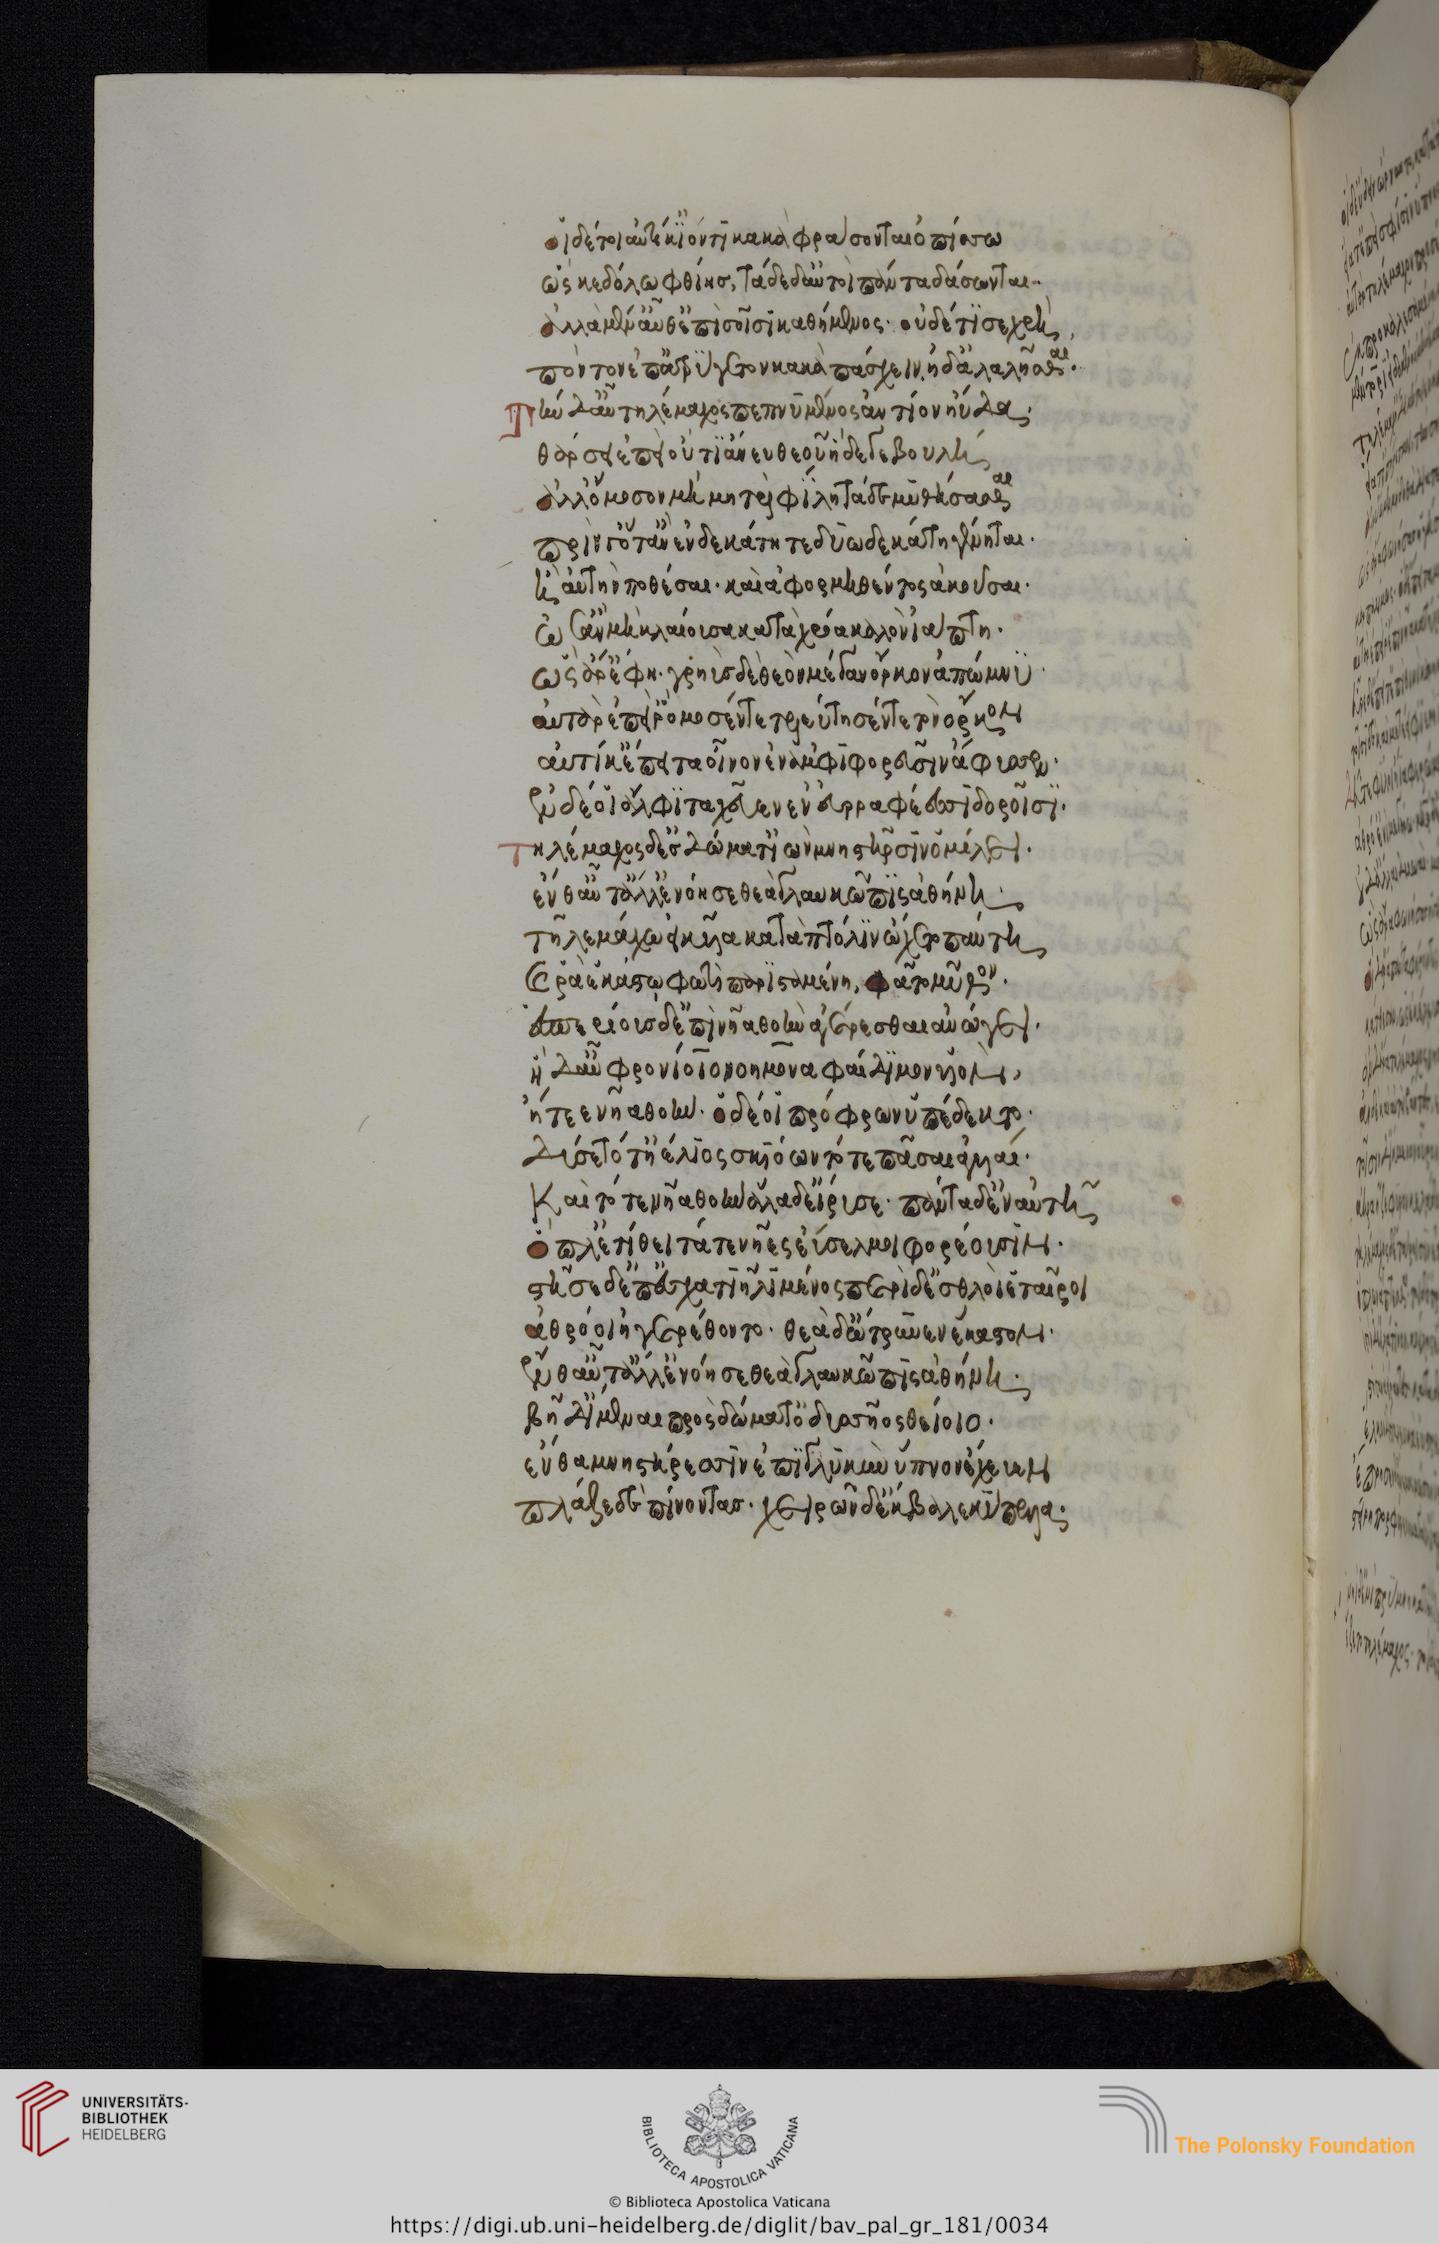 οἱ δέ τοι αὐτίκ' ἰόντι κακὰ φράσσονται ὀπίσσω
ὥς κε δόλω φθίησ, τάδε δ' αὐτοὶ πάντα δάσωνται.
ἀλλὰ μέν' αὖθ' ἐπὶ σοῖσι καθήμενος· οὐδέ τί σε χρὴ
πόντον ἐπ' ἀτρύγετον κακὰ πάσχειν, ἠδ' ἀλάλησθαι.
Τὴν δ' αὖ τηλέμαχος πεπνυμένος ἀντίον ηὔδα,
θάρσει ἐπεὶ οὔ τι ἄνευ θεοῦ ἥδέ γε βουλὴ
ἀλλ' ὄμοσον μὴ μητρὶ φίλη τάδε μυθήσασθαι
πρίν γ' ὅτ' ἂν ἑνδεκάτη τε δυωδεκάτη γένηται.
ἢ αὐτὴν ποθέσαι. καὶ ἀφορμηθέντος ἀκοῦσαι.
ὡς ἂν μὴ κλαίουσα κατὰ χρόα καλὸν ἰάπτη.
ὣς ἄρ' ἔφη. γρηὶς δὲ θεὸν μέγαν ὅρκον ἀπώμνυ.
αὐτὰρ ἐπεί ῥ' ὄμοσέν τε τελεύτησέν τε τὸν ὅρκον
αὐτίκ' ἔπειτα οἶνον ἐν ἀμφιφορεῦσιν ἄφυσσεν.
ἐν δέ οἱ ἄλφιτα χεῦεν ἐϋρραφέεσσι δοροῖσι.
Τηλέμαχος δ' ἐς δώματ' ἰὼν μνηστῆρσιν ὁμίλει.
ἔνθ' αὖτ' ἄλλ' ἐνόησε θεὰ γλαυκῶπις ἀθήνη.
τηλεμάχω εἰκυῖα κατὰ πτόλιν ὤχετο πάντη
καί ῥα ἑκάστω φωτὶ παρισταμένη, φάτο μῦθον.
ἑσπερίους δ' ἐπὶ νῆα θοὴν ἀγέρεσθαι ἀνώγει.
ἡ δ' αὖ φρονίοιο νοήμονα φαίδιμον υἱὸν,
ἤτεε νῆα θοήν. ὁ δέ οἱ πρόφρων ὑπέδεκτο.
δύσετό τ' ἠέλιος σκιόωντό τε πᾶσαι ἀγυιαί.
Καὶ τότε νῆα θοὴν ἅλαδ' εἴρυσε. πάντα δ' ἐν αὐτῆ
ὅπλ' ἐτίθει τά τε νῆες ἐΰσσελμοι φορέουσιν.
στῆσε δ' ἐπ' ἐσχατιῆ λιμένος περὶ δ' ἐσθλοὶ ἑταῖροι
ἀθρόοι ἠγερέθοντο. θεὰ δ' ὤτρυνεν ἕκαστον.
ἔνθ' αὖτ' ἄλλ' ἐνόησε θεὰ γλαυκῶπις ἀθήνη.
βῆ δ' ἴμεναι πρὸς δώματ' ὀδυσσῆος θείοιο.
ἔνθα μνηστήρεσσιν ἐπὶ γλυκὺν ὕπνον ἔχευεν
πλάζε δὲ πίνοντασ. χειρῶν δ' ἔκβαλε κύπελλα.
UNIVERSITÄTS-
BIBLIOTHEK
HEIDELBERG
BIBLIOTECA APOSTOLICA VATICANA
The Polonsky Foundation
© Biblioteca Apostolica Vaticana
https://digi.ub.uni-heidelberg.de/diglit/bav_pal_gr_181/0034